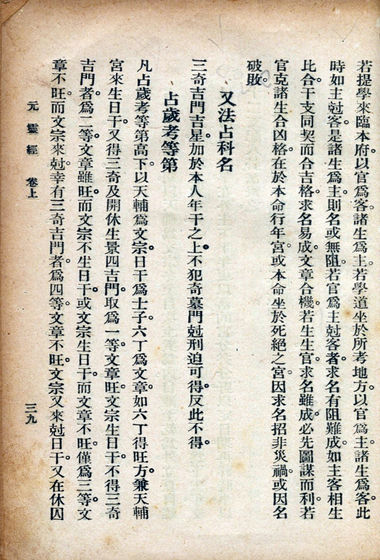 若提學來臨本府。以官爲客諸生爲主。若學道坐於所考地方。以官爲主諸生爲客。此
時如主尅客。是諸生爲主。則名或無阻。若官爲主尅客者。求名有阻難成。如主客相生
比合。干支同契。而合吉格。求名易成。文章合機。若生生官。求名雖成。必先圖謀而利。若
官克諸生。合凶格。在於本命行年宮。或本命坐於死絕之宮。因求名招非災禍。或因名
破敗。
又法占科名
三奇吉門吉星加於本人年干之上。不犯奇墓門尅刑迫可得。反此不得。
占歲考等第
凡占歲考等第高下。以天輔爲文宗。日干爲士子。六丁爲文章。如六丁得旺方。兼天輔
宮來生日干。又得三奇及開休生景四吉門。取爲一等。文章旺。文宗生日干。不得三奇
吉門者。爲二等。文章雖旺。而文宗不生日干。或文宗生日干。而文章不旺。僅爲三等。文
章不旺。而文宗來尅。幸有三奇吉門者。爲四等。文章不旺。文宗又來尅日干。又在休囚
元靈經 卷上 三九